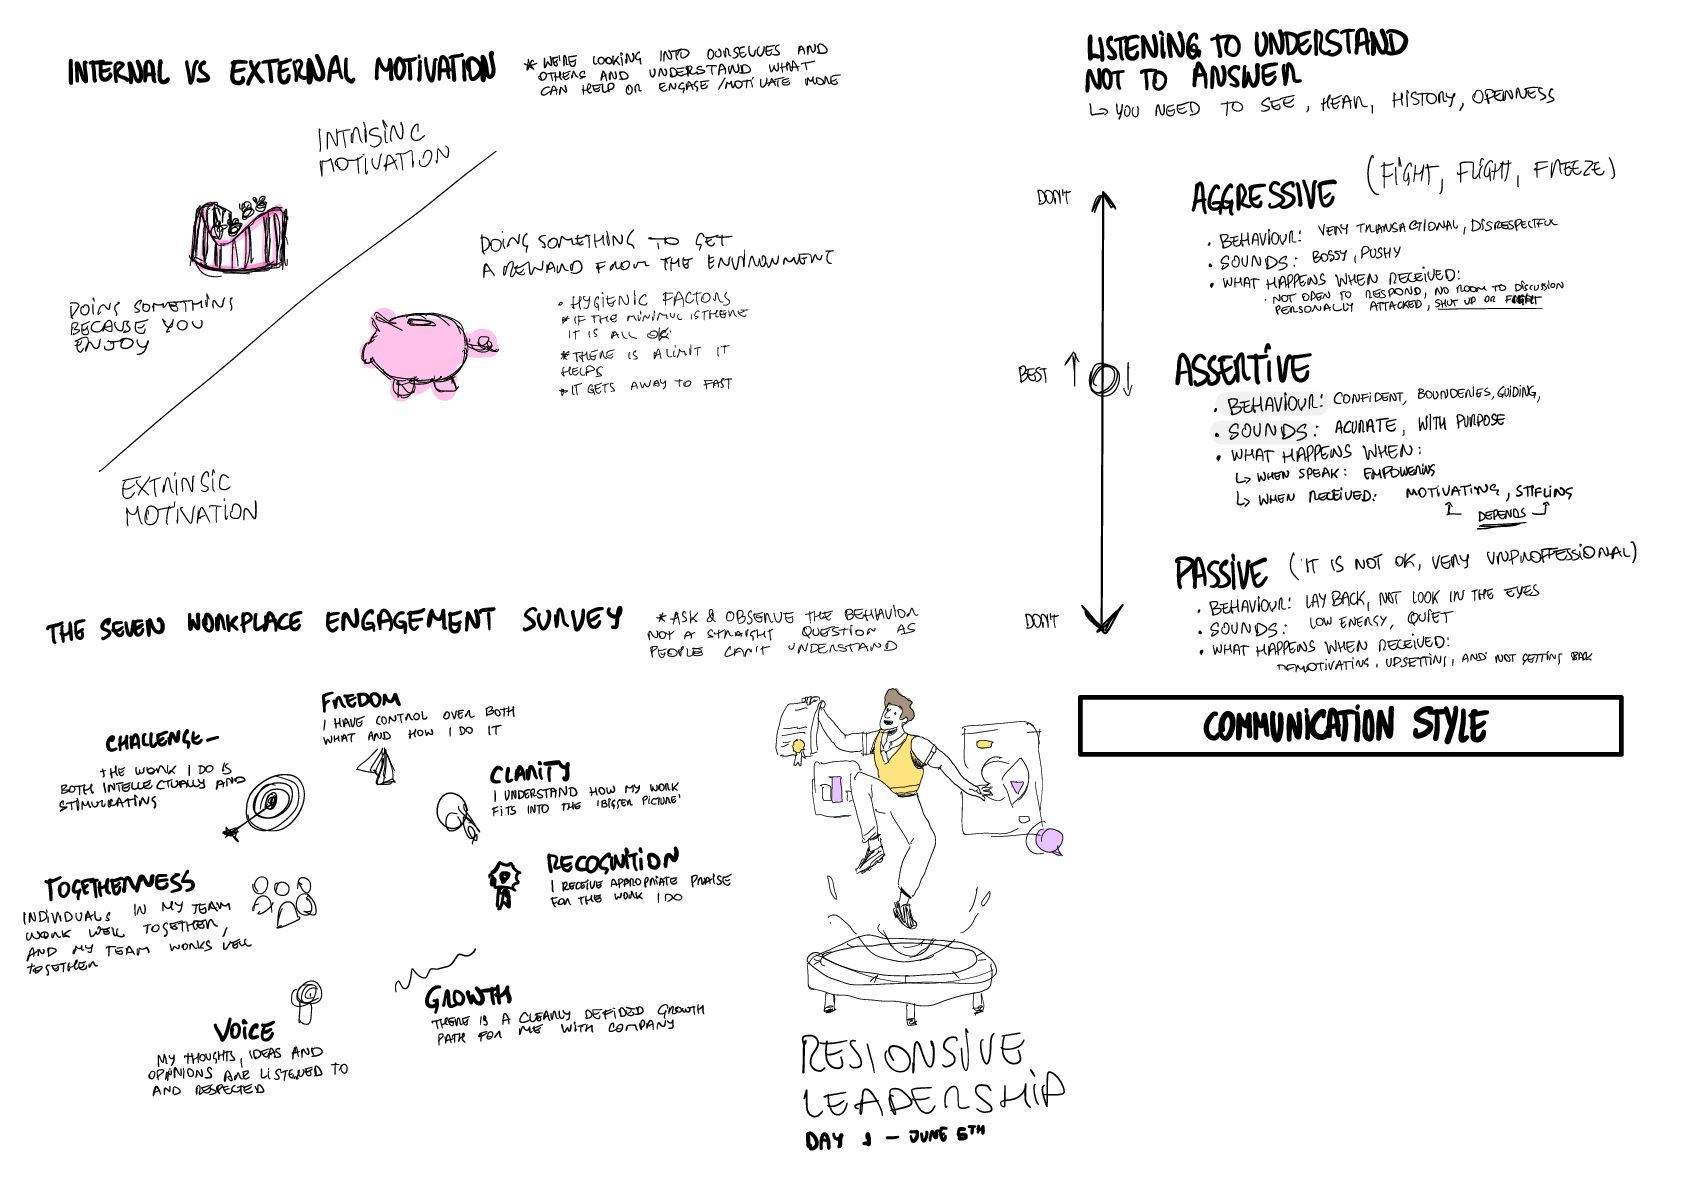 INTERNAL VS EXTERNAL MOTIVATION
* WE'RE LOOKING INTO OURSELVES AND
OTHERS AND UNDERSTAND WHAT
CAN HELP OR ENGAGE / MOTIVATE MORE
INTRISINC
MOTIVATION
DOING SOMETHING
BECAUSE YOU
ENJOY
DOING SOMETHING TO GET
A REWARD FROM THE ENVIRONMENT
• HYGIENIC FACTORS
* IF THE MINIMUL IS THERE
IT IS ALL OK
* THERE IS A LIMIT IT
HELPS
* IT GETS AWAY TO FAST
EXTRINSIC
MOTIVATION
THE SEVEN WORKPLACE ENGAGEMENT SURVEY
* ASK & OBSERVE THE BEHAVIOR
NOT A STRAIGHT QUESTION AS
PEOPLE CAN'T UNDERSTAND
FREDOM
I HAVE CONTROL OVER BOTH
WHAT AND HOW I DO IT
CHALLENGE -
THE WORK I DO IS
BOTH INTELLECTUALLY AND
STIMULRATING
CLARITY
I UNDERSTAND HOW MY WORK
FITS INTO THE 'BIGGER PICTURE'
RECOGNITION
I RECEIVE APPROPRIATE PRAISE
FOR THE WORK I DO
TOGETHERNESS
INDIVIDUALS IN MY TEAM
WORK WELL TOGETHER,
AND MY TEAM WORKS WELL
TOGETHER
GROWTH
THERE IS A CLEARLY DEFIDED GROWTH
PATH FOR ME WITH COMPANY
VOICE
MY THOUGHTS, IDEAS AND
OPINIONS ARE LISTENED TO
AND RESPECTED
RESIONSIVE
LEADERSHIP
DAY 1 - JUNE 5TH
LISTENING TO UNDERSTAND
NOT TO ANSWER
↳ YOU NEED TO SEE, HEAR, HISTORY, OPENNESS
DON'T
AGGRESSIVE (FIGHT, FLIGHT, FREEZE)
• BEHAVIOUR: VERY TRANSACTIONAL, DISRESPECTFUL
• SOUNDS: BOSSY, PUSHY
• WHAT HAPPENS WHEN RECEIVED:
• NOT OPEN TO RESPOND, NO ROOM TO DISCUSSION
PERSONALLY ATTACKED, SHUT UP OR FIGHT
BEST
ASSERTIVE
• BEHAVIOUR: CONFIDENT, BOUNDERIES, GUIDING,
• SOUNDS: ACURATE, WITH PURPOSE
• WHAT HAPPENS WHEN:
↳ WHEN SPEAK: EMPOWERING
↳ WHEN RECEIVED: MOTIVATING, STIFLING
DEPENDS
PASSIVE (IT IS NOT OK, VERY UNPROFFESSIONAL)
• BEHAVIOUR: LAY BACK, NOT LOOK IN THE EYES
• SOUNDS: LOW ENERGY, QUIET
• WHAT HAPPENS WHEN RECEIVED:
DEMOTIVATING, UPSETTING, AND NOT GETTING BACK
DON'T
COMMUNICATION STYLE